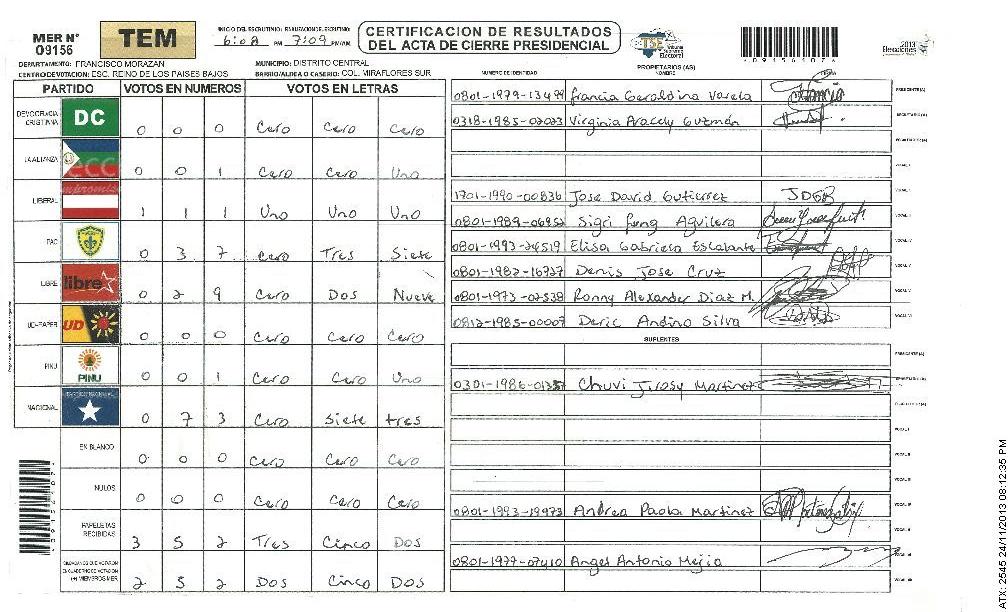 MER N° 09156
TEM
INICIO DEL ESCRUTINIO: 6:08 PM
FINALIZACION DEL ESCRUTINIO: 7:09 PM/AM
CERTIFICACION DE RESULTADOS DEL ACTA DE CIERRE PRESIDENCIAL
TSE Tribunal Supremo Electoral
Elecciones 2013
091561074
DEPARTAMENTO: FRANCISCO MORAZAN
MUNICIPIO: DISTRITO CENTRAL
CENTRO DE VOTACION: ESC. REINO DE LOS PAISES BAJOS
BARRIO/ALDEA O CASERIO: COL. MIRAFLORES SUR
PARTIDO VOTOS EN NUMEROS VOTOS EN LETRAS
DEMOCRACIA CRISTIANA DC 0 0 0 Cero Cero Cero
LA ALIANZA 0 0 1 Cero Cero Uno
LIBERAL 1 1 1 Uno Uno Uno
PAC 0 3 7 Cero Tres Siete
LIBRE libre 0 2 9 Cero Dos Nueve
UD-FAPER UD 0 0 0 Cero Cero Cero
PINU PINU 0 0 1 Cero Cero Uno
NACIONAL 0 7 3 Cero Siete tres
EN BLANCO 0 0 0 Cero Cero Cero
NULOS 0 0 0 Cero Cero Cero
PAPELETAS RECIBIDAS 3 5 2 Tres Cinco Dos
CIUDADANOS QUE VOTARON EN CUADERNO DE VOTACION (+) MIEMBROS MER 2 5 2 Dos Cinco Dos
NUMERO DE IDENTIDAD PROPIETARIOS (AS) NOMBRE FIRMA
0801-1979-13499 Francia Geraldina Varela PRESIDENTE (A)
0318-1985-02023 Virginia Aracely Guzmán SECRETARIO (A)
1701-1990-00836 Jose David Gutierrez JDGB
0801-1989-06952 Aguilera
0801-1993-24519 Elisa Gabriela Escalante
0801-1982-16737 Denis Jose Cruz
0801-1973-02538 Ronny Alexander Diaz M.
0812-1985-00007 Deric Andino Silva
SUPLENTES
PRESIDENTE (A)
Martinez
0801-1993-19973 Andrea Paola Martinez
0801-1977-07410 Angel Antonio Mejia
ATX-2545 24/11/2013 08:12:35 PM